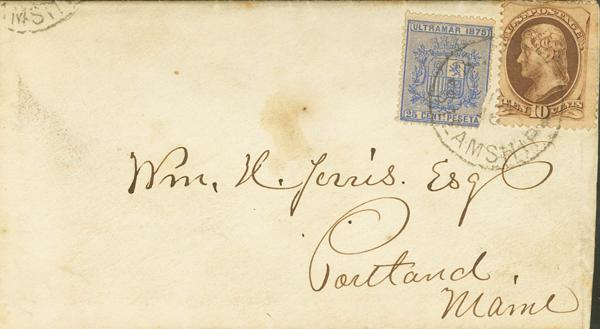 ULTRAMAR 1875
25 CENT. PESETA
U.S. POSTAGE
TEN 10 CENTS
EAMSHIP
Wm. H. Jerris. Esq
Portland
Maine